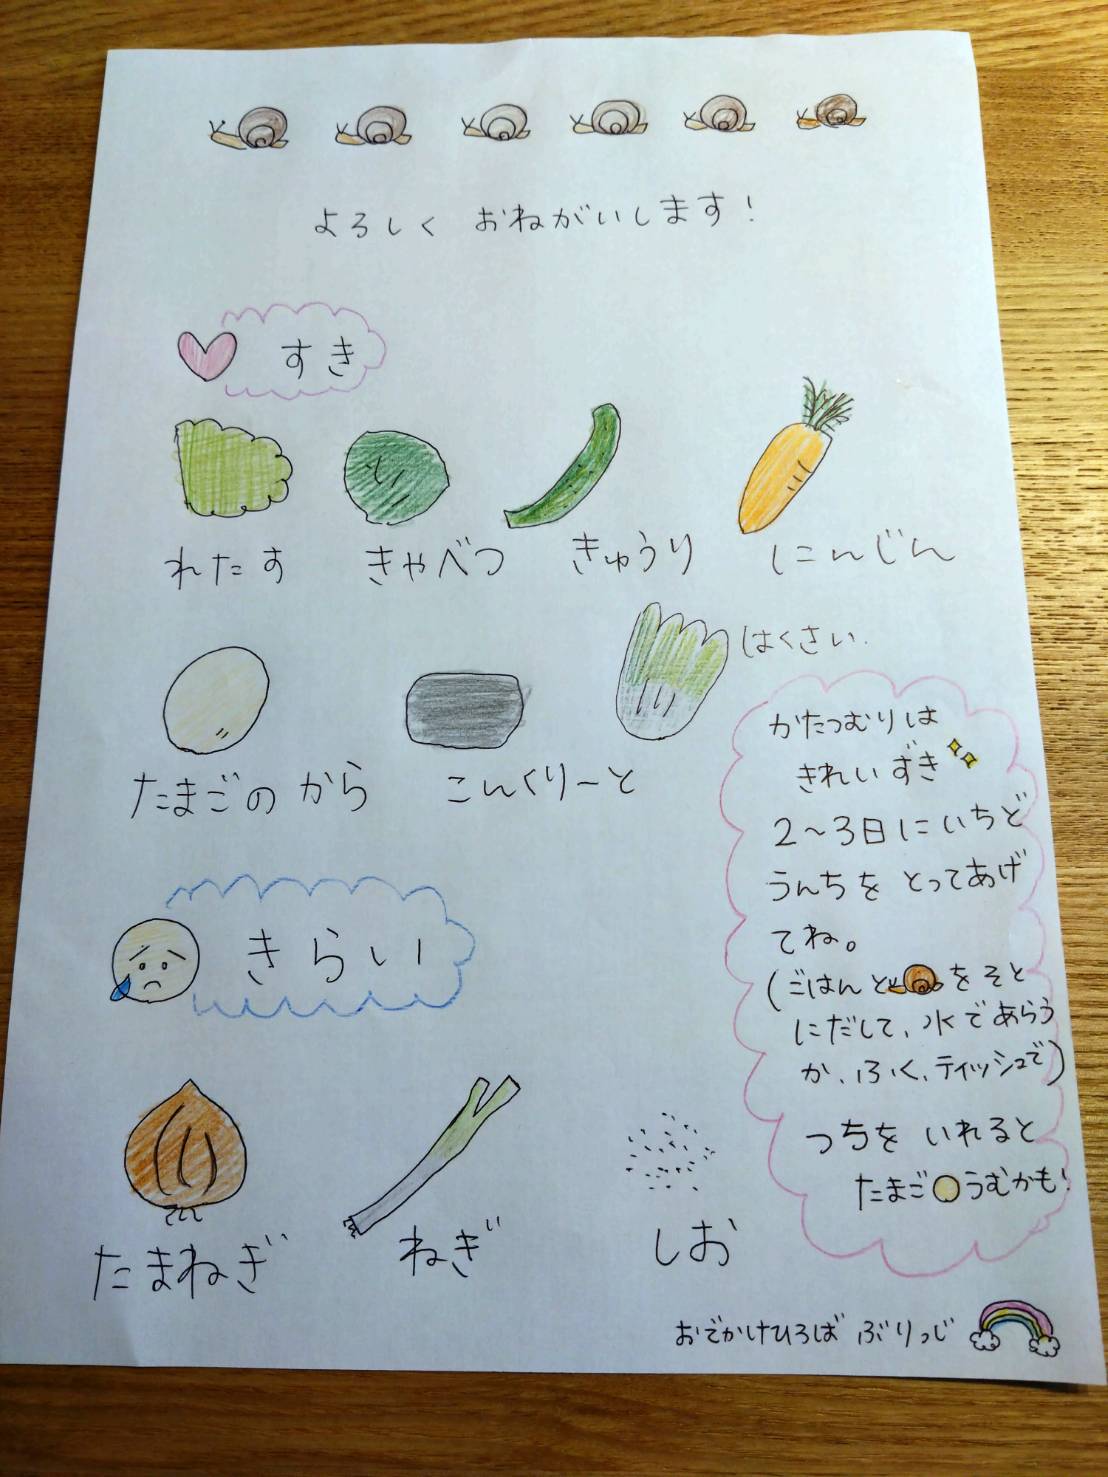 よろしく おねがいします!
すき
れたす きゃべつ きゅうり にんじん
はくさい.
たまごのから こんくりーと
かたつむりは
きれいずき
2~3日にいちど
うんちを とってあげ
てね。
(ごはんと をそと
にだして、水であらう
か、ふく、ティッシュで)
つちを いれると
たまご うむかも
きらい
たまねぎ ねぎ しお
おでかけひろば ぶりっじ